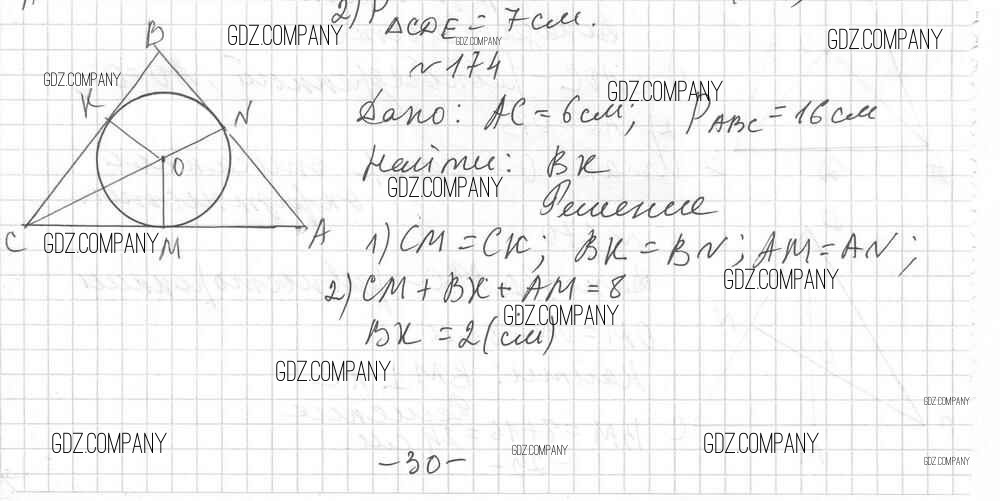 2) P ΔCDE = 7см.
GDZ.COMPANY
GDZ.COMPANY
GDZ.COMPANY
№174
B
GDZ.COMPANY
GDZ.COMPANY
K
N
Дано: AC = 6см; P ABC = 16см
O
Найти: BK
GDZ.COMPANY
Решение
C
M
A
GDZ.COMPANY
1) CM = CK; BK = BN; AM = AN;
GDZ.COMPANY
2) CM + BK + AM = 8
GDZ.COMPANY
BK = 2 (см)
GDZ.COMPANY
GDZ.COMPANY
GDZ.COMPANY
GDZ.COMPANY
GDZ.COMPANY
GDZ.COMPANY
-30-